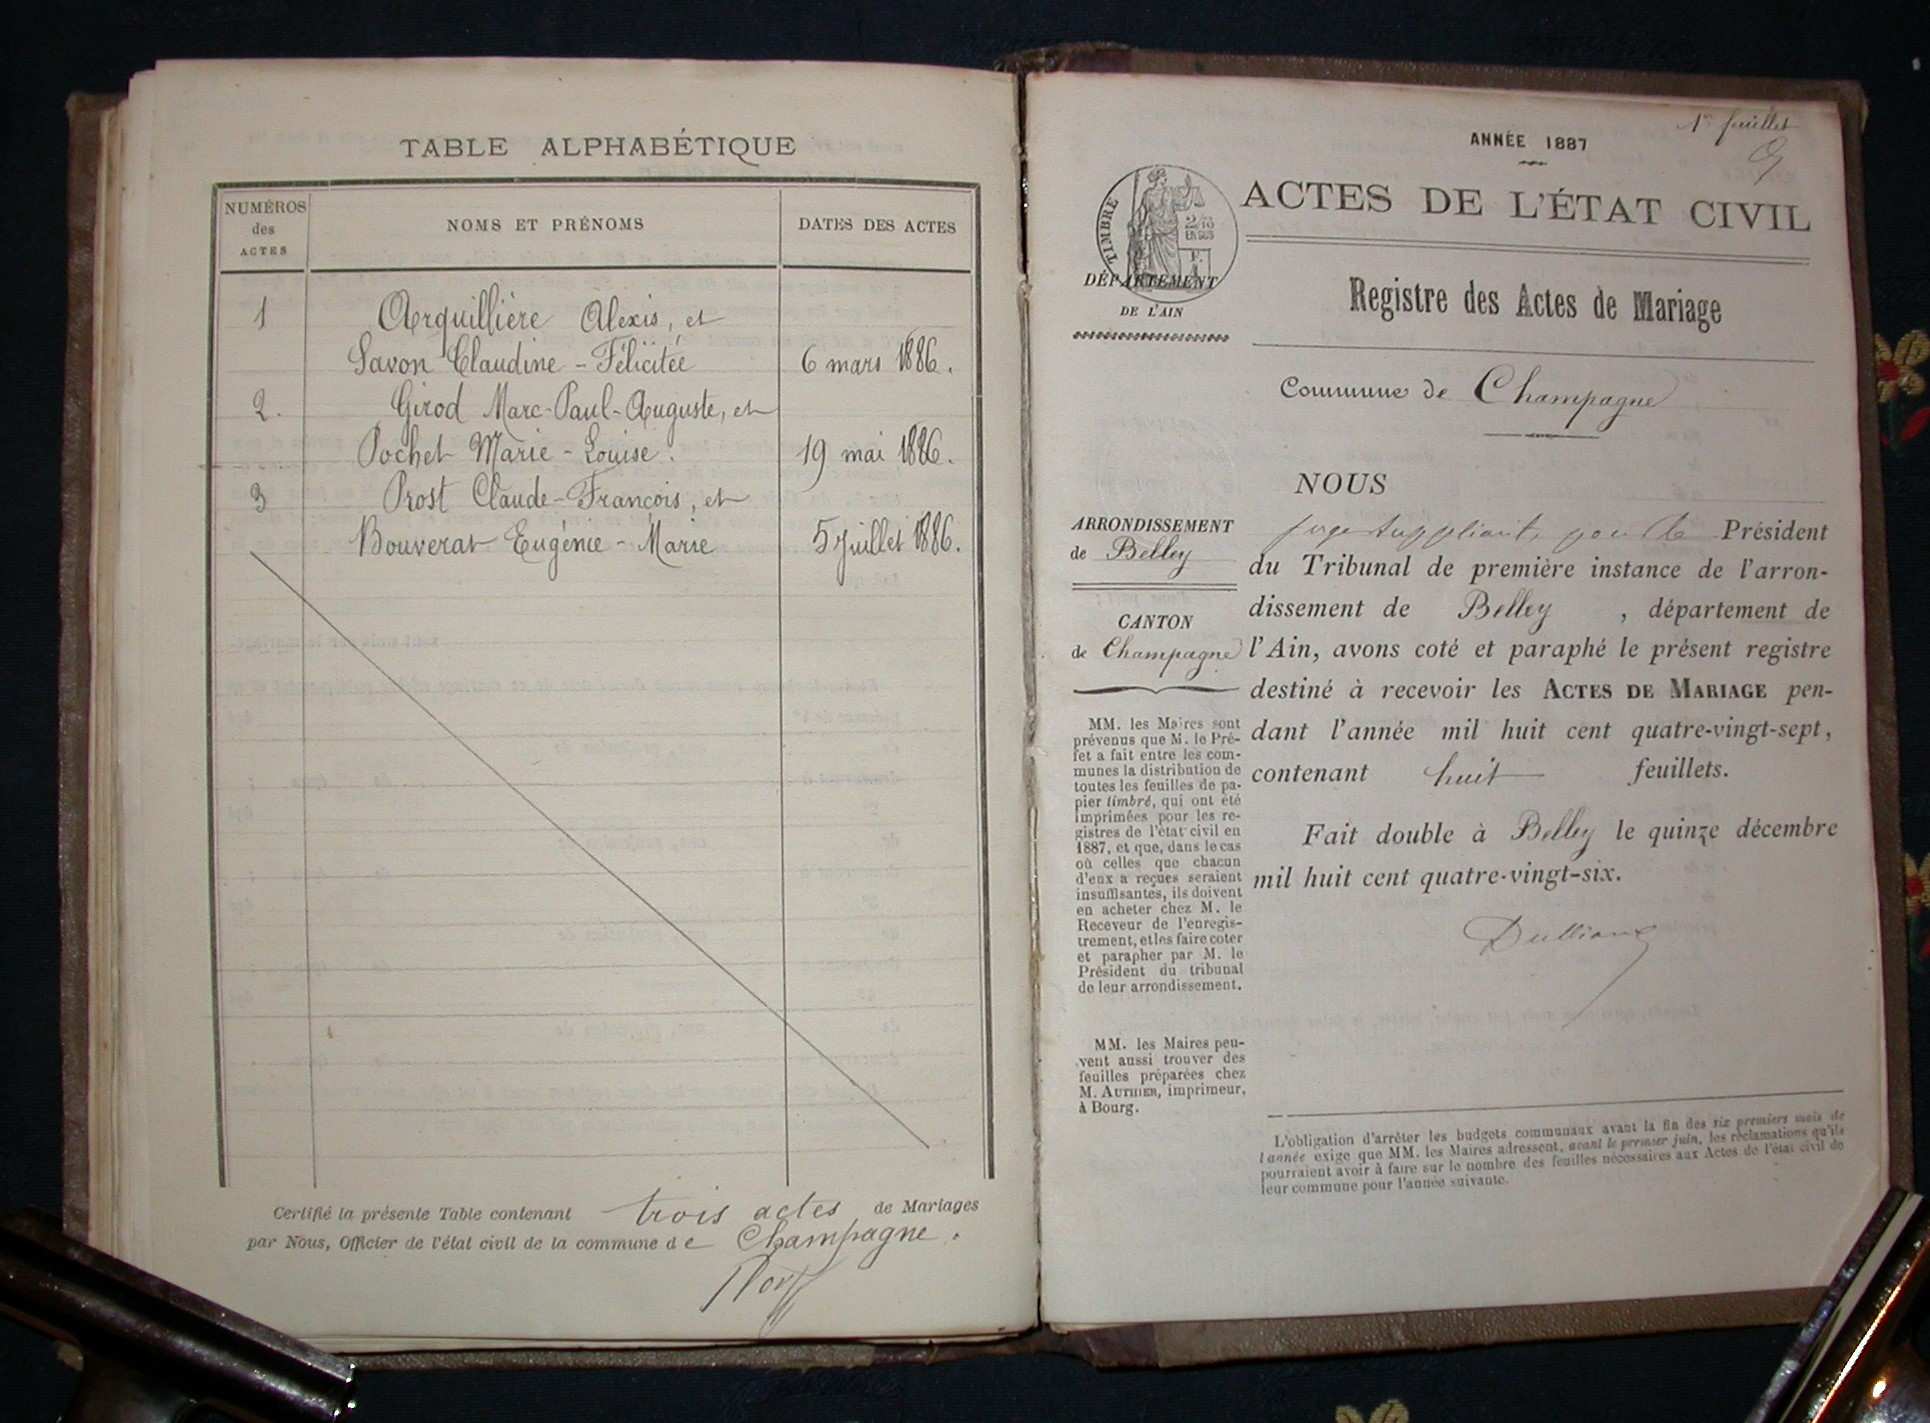 TABLE ALPHABÉTIQUE
NUMÉROS des ACTES
NOMS ET PRÉNOMS
DATES DES ACTES
1 Arquillière Alexis, et
Savon Claudine - Félicitée 6 mars 1886.
2. Girod Marc-Paul-Auguste, et
Pochet Marie-Louise. 19 mai 1886.
3 Prost Claude-François, et
Bouverat Eugénie-Marie 5 juillet 1886.
Certifié la présente Table contenant trois actes de Mariages
par Nous, Officier de l'état civil de la commune de Champagne.
1er feuillet
ANNÉE 1887
ACTES DE L'ÉTAT CIVIL
TIMBRE
2/10
EN SUS
DÉPARTEMENT
DE L'AIN
Registre des Actes de Mariage
Commune de Champagne
ARRONDISSEMENT
de Belley
CANTON
de Champagne
MM. les Maires sont
prévenus que M. le Pré-
fet a fait entre les com-
munes la distribution de
toutes les feuilles de pa-
pier timbré, qui ont été
imprimées pour les re-
gistres de l'état civil en
1887, et que, dans le cas
où celles que chacun
d'eux a reçues seraient
insuffisantes, ils doivent
en acheter chez M. le
Receveur de l'enregis-
trement, et les faire coter
et parapher par M. le
Président du tribunal
de leur arrondissement.
MM. les Maires peu-
vent aussi trouver des
feuilles préparées chez
M. AUTHIER, imprimeur,
à Bourg.
NOUS
juge suppléant, pour le Président
du Tribunal de première instance de l'arron-
dissement de Belley, département de
l'Ain, avons coté et paraphé le présent registre
destiné à recevoir les ACTES DE MARIAGE pen-
dant l'année mil huit cent quatre-vingt-sept,
contenant huit feuillets.
Fait double à Belley le quinze décembre
mil huit cent quatre-vingt-six.
L'obligation d'arrêter les budgets communaux avant la fin des six premiers mois de
l'année exige que MM. les Maires adressent, avant le premier juin, les réclamations qu'ils
pourraient avoir à faire sur le nombre des feuilles nécessaires aux Actes de l'état civil de
leur commune pour l'année suivante.